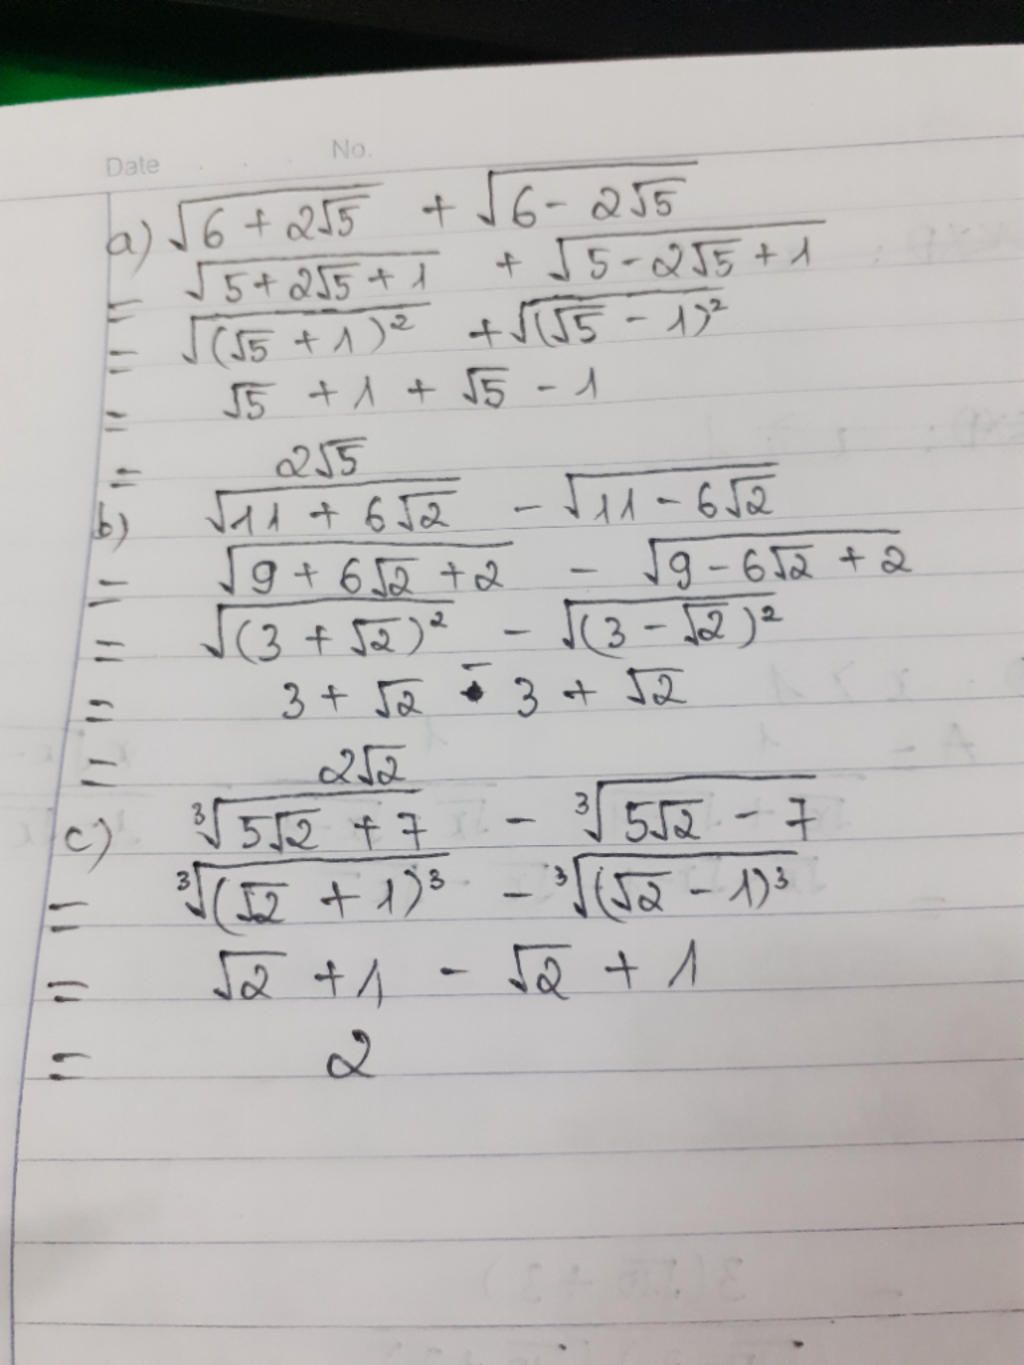 Date No.
a) √(6 + 2√5) + √(6 - 2√5)
= √(5 + 2√5 + 1) + √(5 - 2√5 + 1)
= √((√5 + 1)²) + √((√5 - 1)²)
= √5 + 1 + √5 - 1
= 2√5
b) √(11 + 6√2) - √(11 - 6√2)
= √(9 + 6√2 + 2) - √(9 - 6√2 + 2)
= √((3 + √2)²) - √((3 - √2)²)
= 3 + √2 - 3 + √2
= 2√2
c) ∛(5√2 + 7) - ∛(5√2 - 7)
= ∛((√2 + 1)³) - ∛((√2 - 1)³)
= √2 + 1 - √2 + 1
= 2